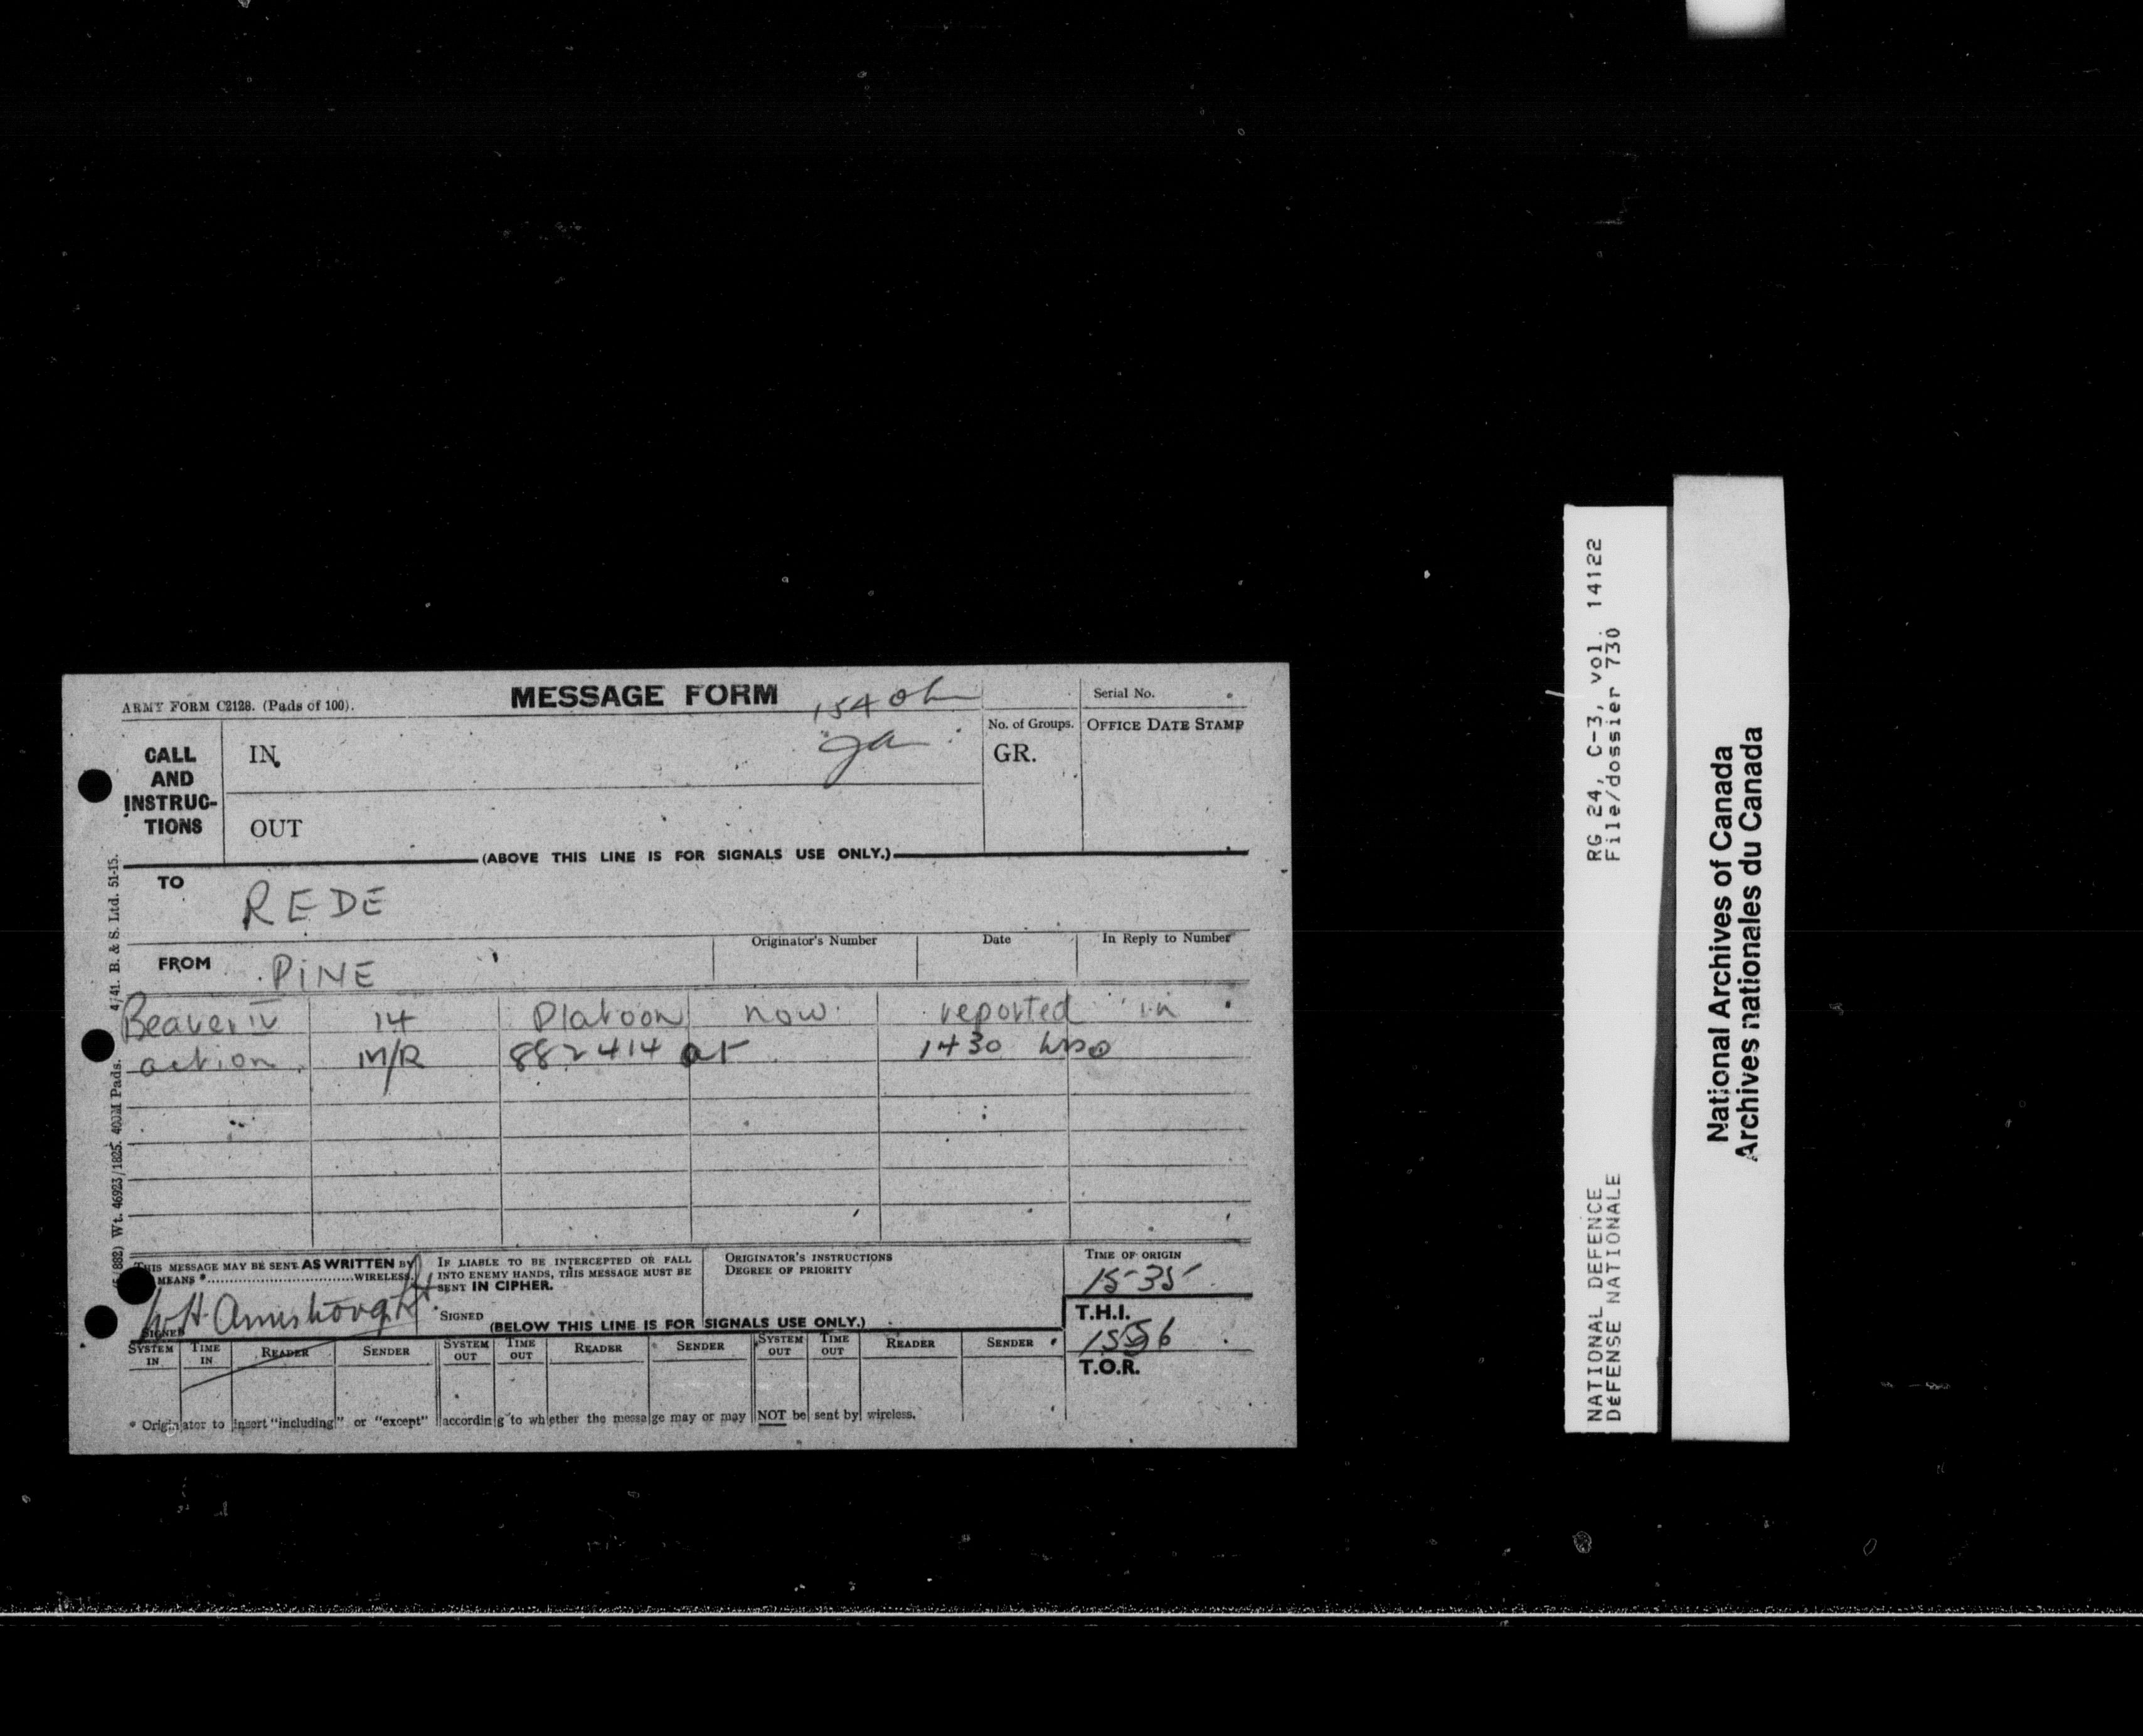 ARMY FORM C2128. (Pads of 100).
MESSAGE FORM
Serial No.
CALL AND INSTRUC-TIONS
IN
OUT
No. of Groups.
GR.
OFFICE DATE STAMP
(ABOVE THIS LINE IS FOR SIGNALS USE ONLY.)
TO
REDE
FROM
PINE
Originator's Number
Date
In Reply to Number
Beaver IV 14 Platoon now reported in
action M/R 882414 at 1430 hrs
THIS MESSAGE MAY BE SENT AS WRITTEN BY
MEANS *.......................WIRELESS.
SIGNED
IF LIABLE TO BE INTERCEPTED OR FALL
INTO ENEMY HANDS, THIS MESSAGE MUST BE
SENT IN CIPHER.
SIGNED
ORIGINATOR'S INSTRUCTIONS
DEGREE OF PRIORITY
TIME OF ORIGIN
1535
T.H.I.
T.O.R.
(BELOW THIS LINE IS FOR SIGNALS USE ONLY.)
SYSTEM IN TIME IN READER SENDER SYSTEM OUT TIME OUT READER SENDER SYSTEM OUT TIME OUT READER SENDER
* Originator to insert "including" or "except" according to whether the message may or may NOT be sent by wireless.
Wt. 46923/1825. 400M Pads. 4/41. B. & S. Ltd. 51-15.
RG 24, C-3, vol. 14122
File/dossier 730
NATIONAL DEFENCE
DEFENSE NATIONALE
National Archives of Canada
Archives nationales du Canada